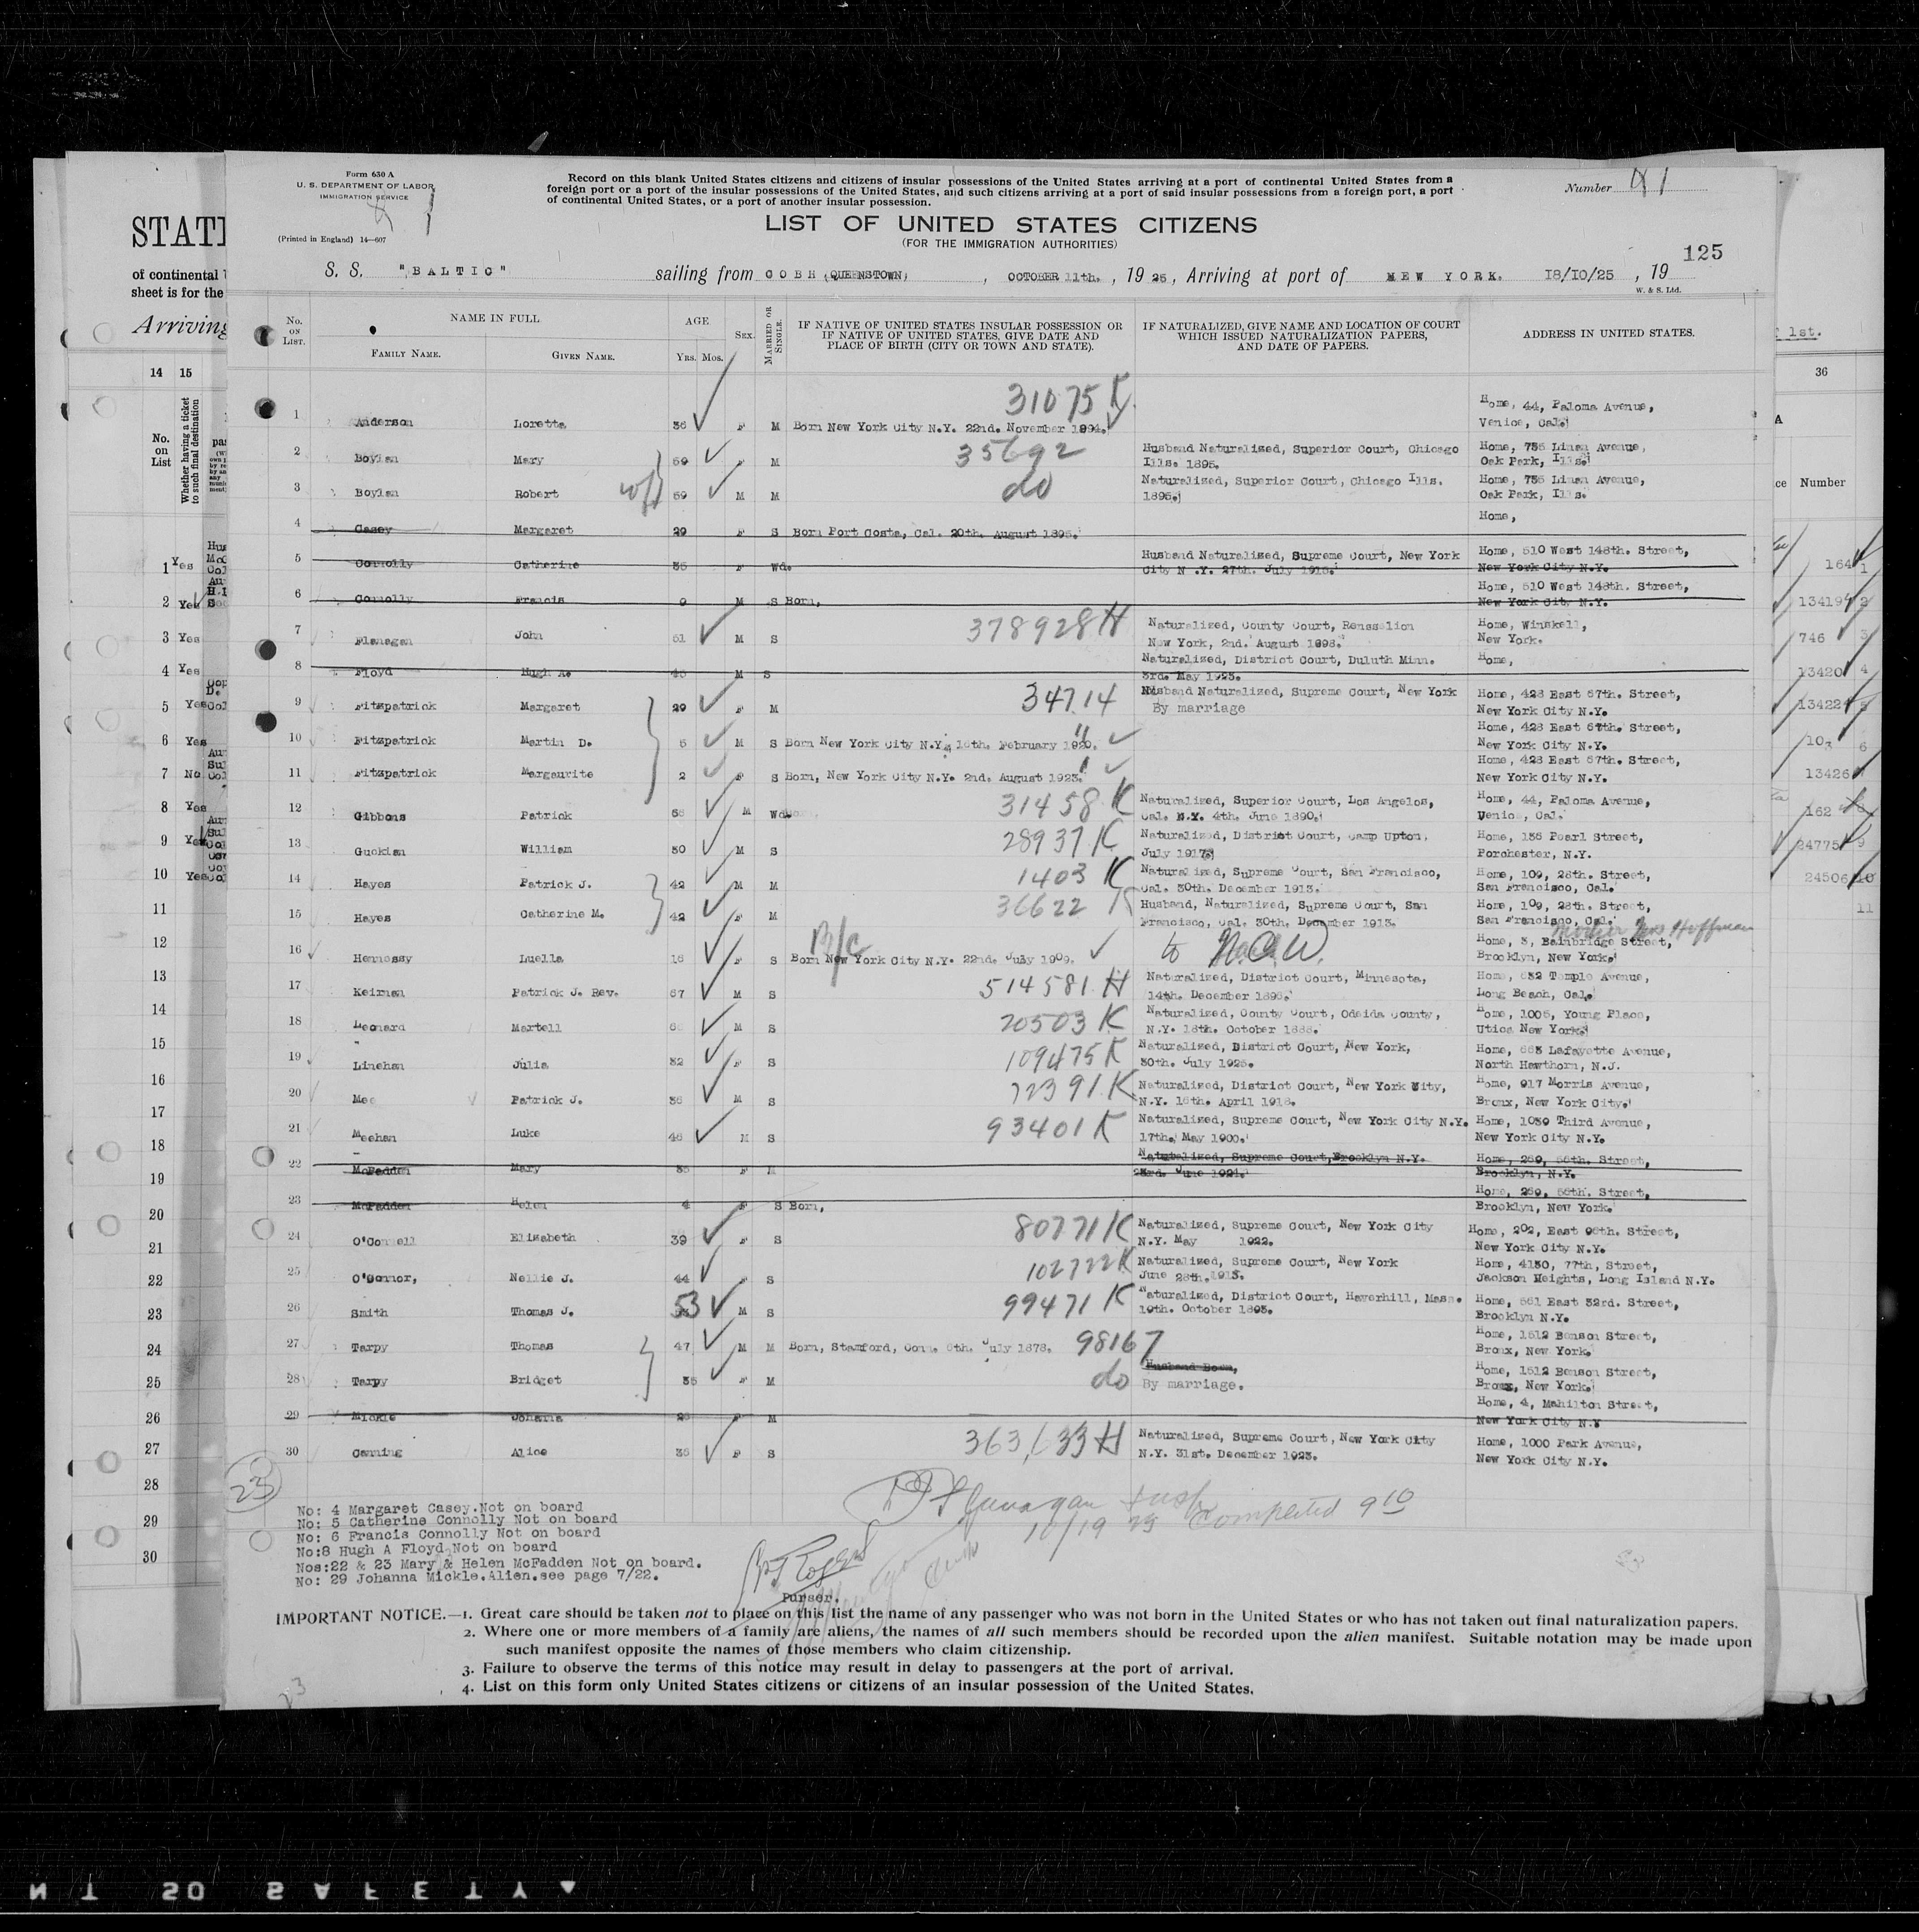 Form 630 A
U. S. DEPARTMENT OF LABOR
IMMIGRATION SERVICE
(Printed in England) 14—607
Record on this blank United States citizens and citizens of insular possessions of the United States arriving at a port of continental United States from a
foreign port or a port of the insular possessions of the United States, and such citizens arriving at a port of said insular possessions from a foreign port, a port
of continental United States, or a port of another insular possession.
Number 1
LIST OF UNITED STATES CITIZENS
(FOR THE IMMIGRATION AUTHORITIES)
125
S. S. "BALTIC" sailing from COBH (QUEENSTOWN), OCTOBER 11th., 1925, Arriving at port of NEW YORK. 18/10/25, 19
W. & S. Ltd.
No. ON LIST. NAME IN FULL FAMILY NAME. GIVEN NAME. AGE YRS. MOS. SEX. MARRIED OR SINGLE. IF NATIVE OF UNITED STATES INSULAR POSSESSION OR IF NATIVE OF UNITED STATES, GIVE DATE AND PLACE OF BIRTH (CITY OR TOWN AND STATE). IF NATURALIZED, GIVE NAME AND LOCATION OF COURT WHICH ISSUED NATURALIZATION PAPERS, AND DATE OF PAPERS. ADDRESS IN UNITED STATES.
31075 K
1 Anderson Loretta F M Born New York City N.Y. 22nd. November 1894. Home, 44, Paloma Avenue, Venice, Cal.
2 Boylan Mary 59 F M 35692 Husband Naturalized, Superior Court, Chicago Ills. 1895. Home, Avenue, Oak Park, Ills.
3 Boylan Robert 59 M M do Naturalized, Superior Court, Chicago Ills. 1895. Home, Avenue, Oak Park, Ills.
4 Casey Margaret 29 F S Born Port Costa, Cal. 20th. August 1895. Home,
5 Connolly Catherine F Wd. Husband Naturalized, Supreme Court, New York City N.Y. 27th. July Home, 510 West 148th. Street, New York City N.Y.
6 Connolly Francis 9 M S Born, Home, 510 West 148th. Street, New York City N.Y.
7 Flanagan John 51 M S 378928 H Naturalized, County Court, New York, 2nd. August Home, Winskell, New York.
8 Floyd Hugh A. M S Naturalized, District Court, Duluth Minn. 3rd. May 1923. Home,
9 Fitzpatrick Margaret 29 F M 34714 Husband Naturalized, Supreme Court, New York By marriage Home, 428 East 67th. Street, New York City N.Y.
10 Fitzpatrick Martin D. 5 M S Born New York City N.Y. February 1920. " Home, 428 East 67th. Street, New York City N.Y.
11 Fitzpatrick Margaurite 2 F S Born, New York City N.Y. 2nd. August 1923. Home, 428 East 67th. Street, New York City N.Y.
12 Gibbons Patrick M Wd. 31458 K Naturalized, Superior Court, Los Angelos, Cal. N.Y. 4th. June 1890. Home, 44, Paloma Avenue, Venice, Cal.
13 William 30 M S 28937 K Naturalized, District Court, Camp Upton, July Home, Pearl Street, Porchester, N.Y.
14 Hayes Patrick J. 42 M M 1403 K Naturalized, Supreme Court, San Francisco, Cal. 30th. December 1913. Home, 109, 28th. Street, San Francisco, Cal.
15 Hayes Catherine M. 42 F M 36622 K Husband, Naturalized, Supreme Court, San Francisco, Cal. 30th. December 1913. Home, 109, 28th. Street, San Francisco, Cal.
Mother Mrs Hoffman
16 Hennessy Luella 16 F S B/C Born New York City N.Y. 22nd. July 1909. to Home, 3, Bainbridge Street, Brooklyn, New York.
17 Keirnan Patrick J. Rev. 67 M S 514581 H Naturalized, District Court, Minnesota, 14th. December Home, 632 Temple Avenue, Long Beach, Cal.
18 Leonard Martell M S 20503 K Naturalized, County Court, Odeida County, N.Y. 18th. October 1888. Home, 1005, Young Place, Utica New York.
19 Linehan Julia 32 F S 109475 K Naturalized, District Court, New York, 30th. July 1925. Home, Lafayette Avenue, North Hawthorn, N.J.
20 Mee Patrick J. 36 M S 72391 K Naturalized, District Court, New York City, N.Y. 16th. April 1918. Home, 917 Morris Avenue, Bronx, New York City.
21 Meehan Luke 46 M S 93401 K Naturalized, Supreme Court, New York City N.Y. 17th. May 1900. Home, 1039 Third Avenue, New York City N.Y.
22 McFadden Mary F M Naturalized, Supreme Court, Brooklyn N.Y. 23rd. June Home, 259, 55th. Street, Brooklyn, N.Y.
23 McFadden Helen 4 F S Born, Home, 259, 55th. Street, Brooklyn, New York.
24 O'Connell Elizabeth 39 F S 80771 K Naturalized, Supreme Court, New York City N.Y. May 1922. Home, 202, East Street, New York City N.Y.
25 O'Connor, Nellie J. 44 F S 102722 K Naturalized, Supreme Court, New York June 28th. 1913. Home, 4130, 77th, Street, Jackson Heights, Long Island N.Y.
26 Smith Thomas J. 53 M S 99471 K Naturalized, District Court, Haverhill, Mass. 19th. October 1893. Home, East 32rd. Street, Brooklyn N.Y.
27 Tarpy Thomas 47 M M Born, Stamford, Conn. 6th. July 1878. 98167 Home, 1512 Benson Street, Bronx, New York.
28 Tarpy Bridget F M do Husband Born, By marriage. Home, 1512 Benson Street, Bronx, New York.
29 Mickle Johanna F M Home, 4, Mahilton Street, New York City N.Y
30 Alice F S Naturalized, Supreme Court, New York City N.Y. 31st. December 1923. Home, 1000 Park Avenue, New York City N.Y.
23
Flanagan Insp 10/19 25 Completed 9 10
No: 4 Margaret Casey.Not on board
No: 5 Catherine Connolly Not on board
No: 6 Francis Connolly Not on board
No:8 Hugh A Floyd Not on board
Nos:22 & 23 Mary & Helen McFadden Not on board.
No: 29 Johanna Mickle.Alien.see page 7/22.
Purser.
IMPORTANT NOTICE.—1. Great care should be taken not to place on this list the name of any passenger who was not born in the United States or who has not taken out final naturalization papers.
2. Where one or more members of a family are aliens, the names of all such members should be recorded upon the alien manifest. Suitable notation may be made upon
such manifest opposite the names of those members who claim citizenship.
3. Failure to observe the terms of this notice may result in delay to passengers at the port of arrival.
4. List on this form only United States citizens or citizens of an insular possession of the United States.
23
STAT
of continental
sheet is for the
Arriving
14 15
No. on List
Whether having a ticket to such final destination
1 Yes
2 Yes
3 Yes
4 Yes
5 Yes
6 Yes
7 No
8 Yes
9 Yes
10 Yes
11
12
13
14
15
16
17
18
19
20
21
22
23
24
25
26
27
28
29
30
1st.
36
Number
164 1
13419 2
746 3
13420 4
13422 5
103 6
13426
162 8
24775 9
24506 10
11
SAFETY